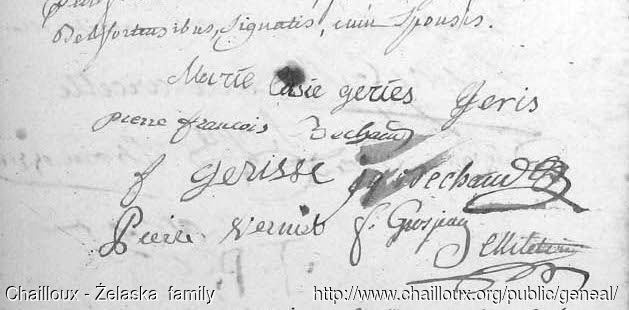 Belfortensibus, Signatis, cum Sponsis.
Marie Casie geries Jeris
pierre francois Bechaud
f gerisse j Bechaud
Pierre Vernier f. Grosjean
Chailloux - Żelaska family http://www.chailloux.org/public/geneal/